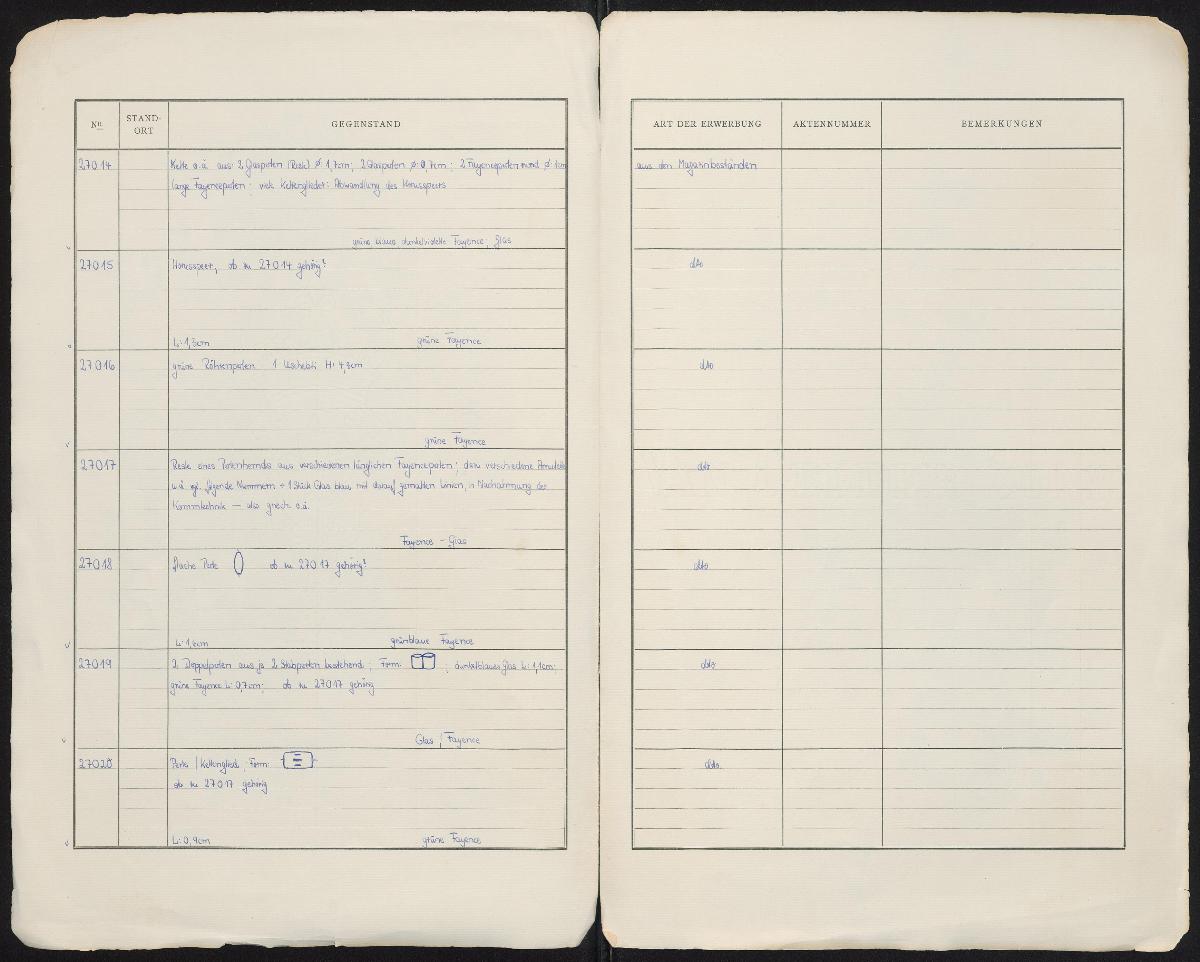 Nr.
STAND-
ORT
GEGENSTAND
ART DER ERWERBUNG
AKTENNUMMER
BEMERKUNGEN
27014
Kette o.ä. aus: 2 Glasperlen (Reste) Ø 1,7cm; 2 Glasperlen Ø: 0,7cm; 2 Fayenceperlen rund Ø: 1cm
lange Fayenceperlen; viele Kettenglieder: Abwandlung des Horusspeers
grüne blaue dunkelviolette Fayence, Glas
aus den Magazinbeständen
27015
Horusspeer, ob zu 27014 gehörig?
L: 1,3cm
grüne Fayence
dto
27016
grüne Röhrenperlen 1 Uschebti H: 4,3cm
grüne Fayence
dto
27017
Reste eines Perlenhemds aus verschiedenen länglichen Fayenceperlen; dazu verschiedene Amulette
u.ä. vgl. folgende Nummern + 1 Stück Glas blau mit darauf gemalten Linien, in Nachahmung der
Kammtechnik — also griech. o.ä.
Fayence - Glas
dto
27018
flache Perle ob zu 27017 gehörig?
L: 1,6cm
grünblaue Fayence
dto
27019
2 Doppelperlen aus je 2 Stabperlen bestehend; Form: ; dunkelblaues Glas L: 1,1cm;
grüne Fayence L: 0,7cm; ob zu 27017 gehörig
Glas, Fayence
dto
27020
Perle / Kettenglied, Form:
ob zu 27017 gehörig
L: 0,9cm
grüne Fayence
dto.